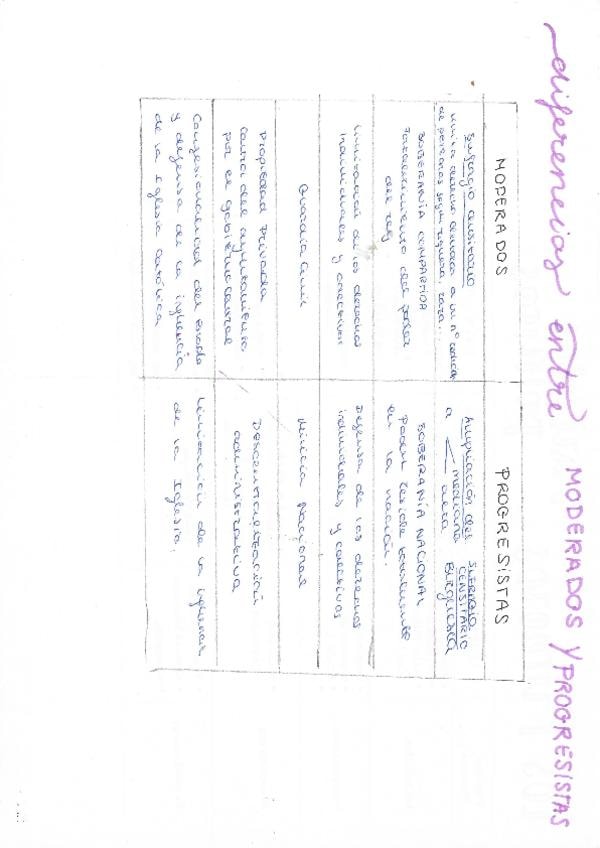 diferencias entre MODERADOS Y PROGRESISTAS
MODERADOS
PROGRESISTAS
Sufragio censitario
limita derecho de voto a un nº
de personas según riqueza,
Ampliación del SUFRAGIO
CENSITARIO
a mediana
alta BURGUESÍA
SOBERANÍA COMPARTIDA
Fortalecimiento del poder
del rey
SOBERANÍA NACIONAL
Poder reside totalmente
en la nación.
Limitación de los derechos
individuales y colectivos
Defensa de los derechos
individuales y colectivos
Guardia Civil
Milicia Nacional
Propiedad Privada
Control del ayuntamiento
por el gobierno central
Descentralización
administrativa
Confesionalidad del Estado
y defensa de la influencia
de la Iglesia católica
Limitación de la influencia
de la Iglesia.